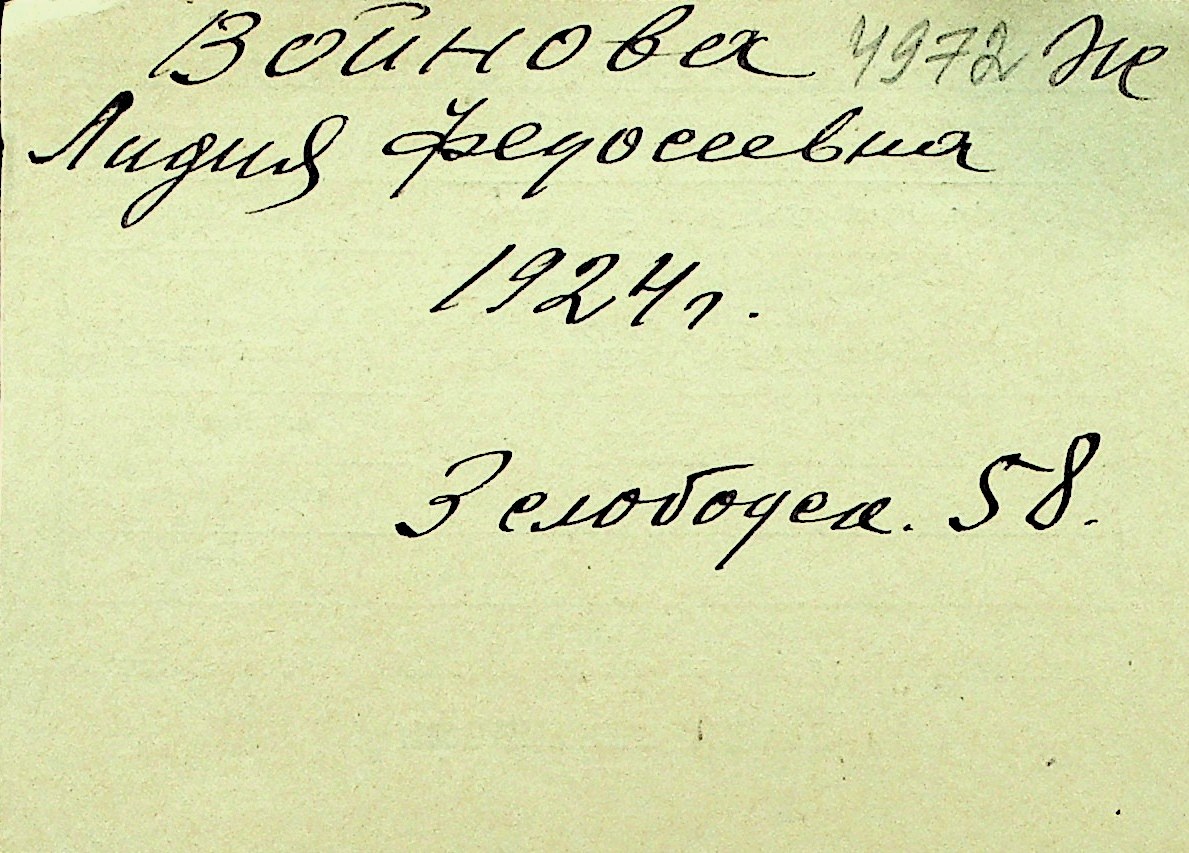 Войнова 4972 Ж
Лидия Федосеевна
1924 г.
3 слободск. 58.